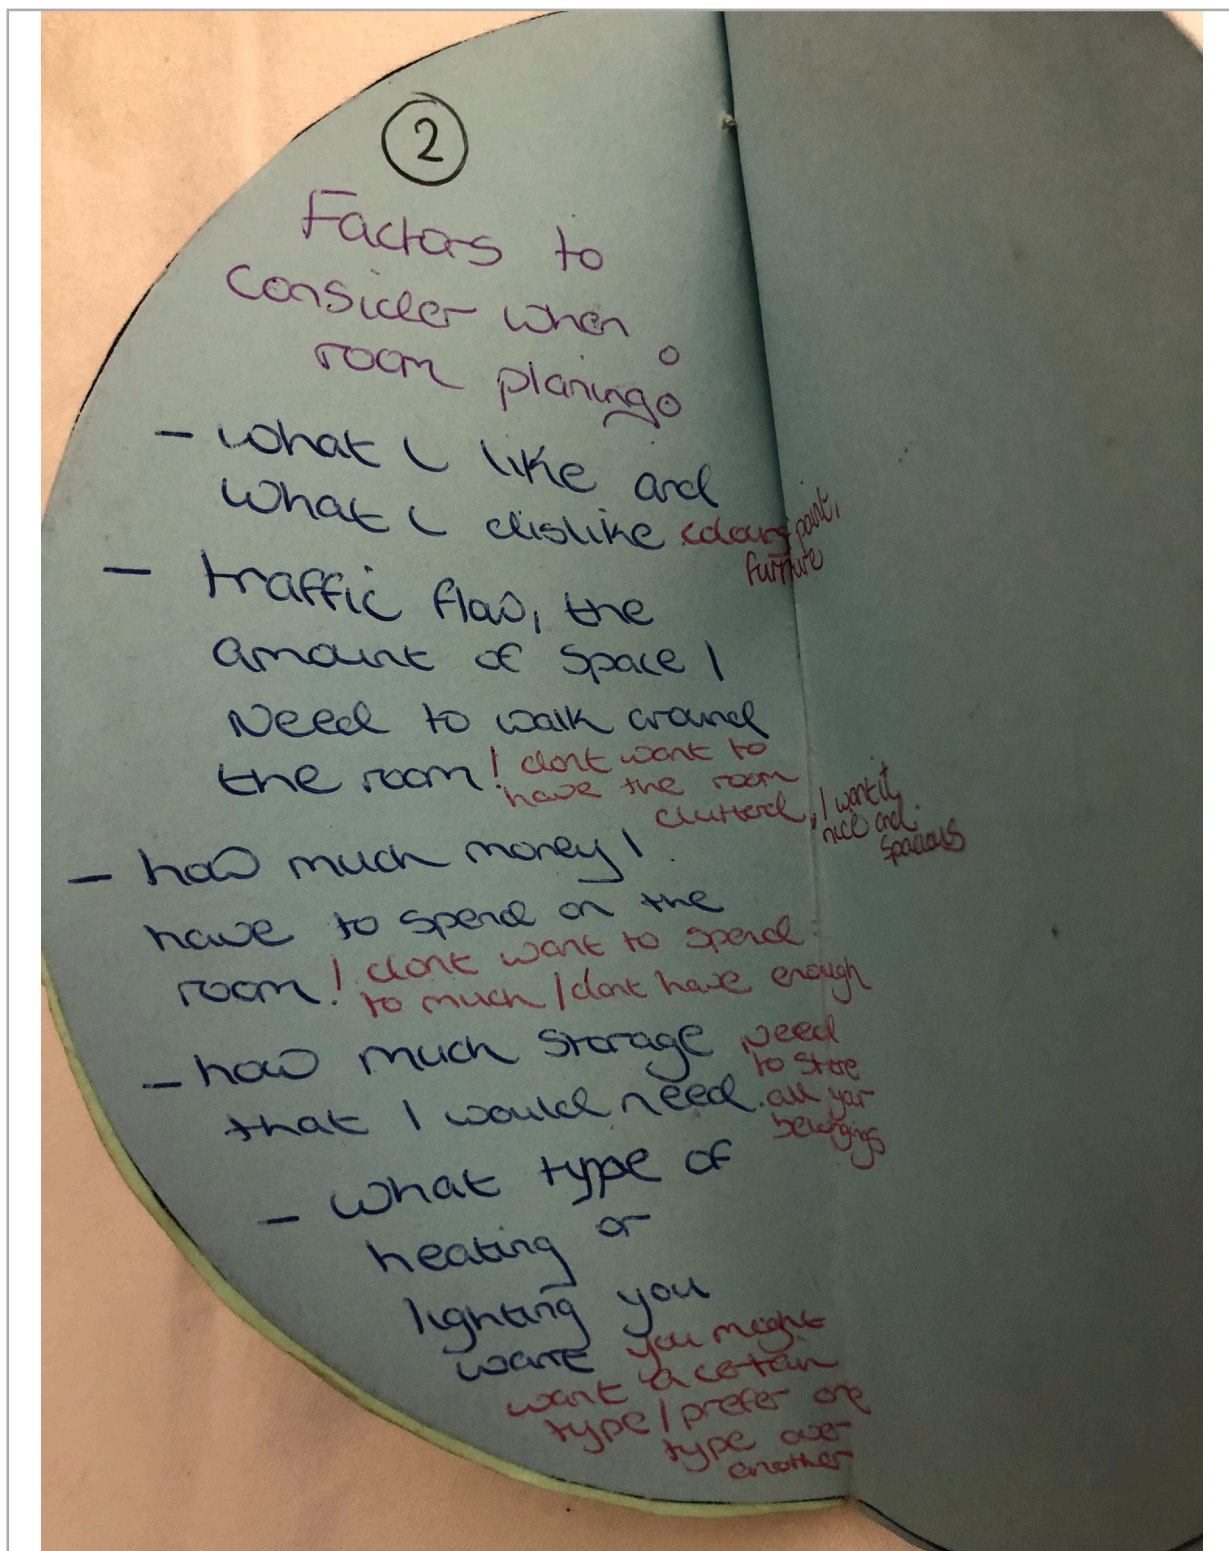 2
Factors to
consider when
room planing:
- what I like and
what I dislike colours, paint,
furniture
- traffic flow, the
amount of space I
Need to walk around
the room! dont want to
have the room
clutterd, I want it
nice and
spacious
- how much money I
have to spend on the
room! dont want to spend
to much / dont have enough
- how much storage Need
to store
that I would need. all your
belongings
- what type of
heating or
lighting you
want you might
want a certain
type / prefer one
type over
another